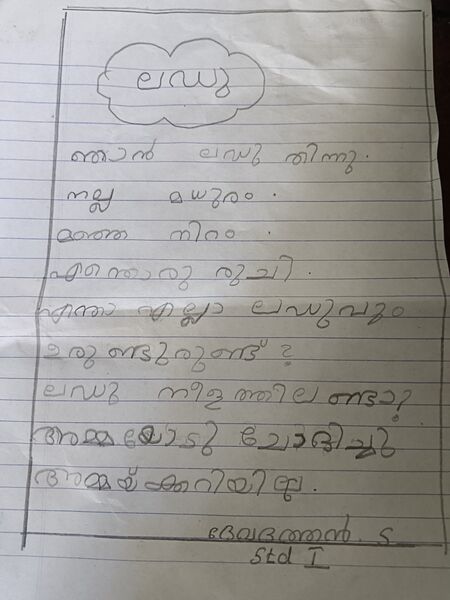 ലഡു
ഞാൻ ലഡു തിന്നു.
നല്ല മധുരം.
മഞ്ഞ നിറം.
എന്തൊരു രുചി.
എന്താ എല്ലാ ലഡുവും
ഉരുണ്ടുരുണ്ട്?
ലഡു നീളത്തിലുണ്ടോ?
അമ്മയോടു ചോദിച്ചു
അമ്മയ്ക്കറിയില്ല.
ദേവദത്തൻ. S
Std I